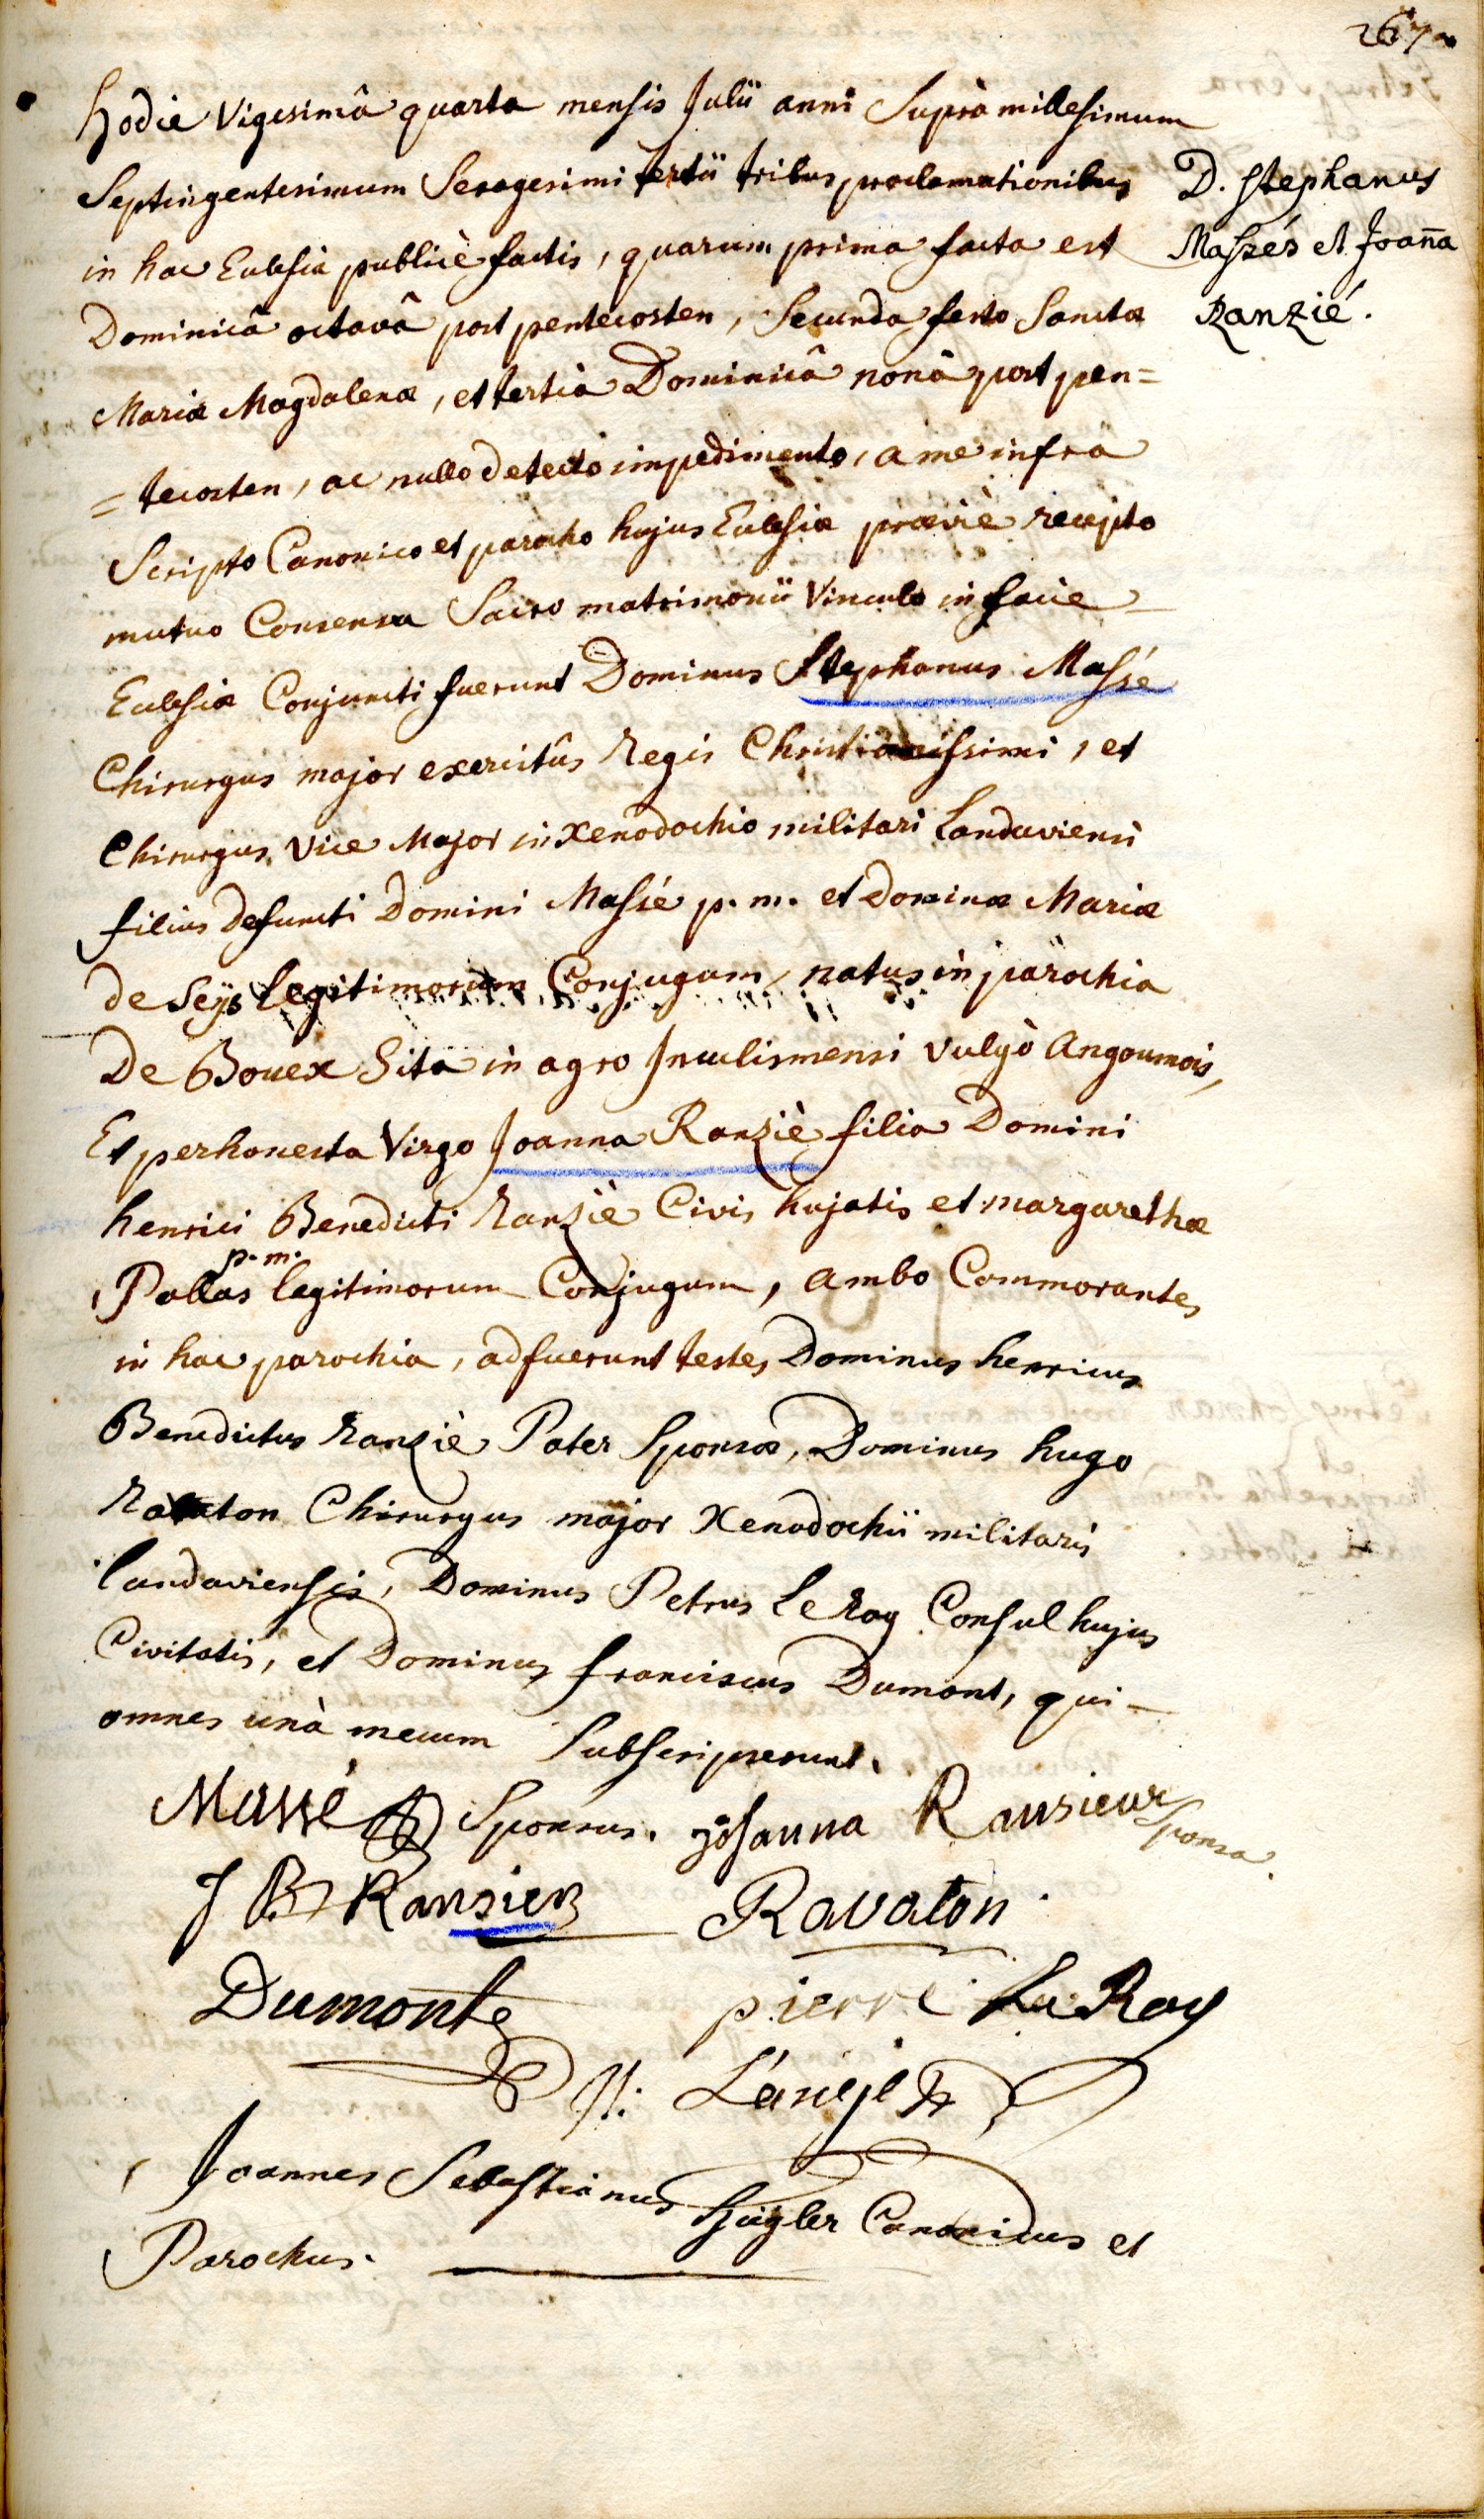 267
Hodie Vigesimâ quarta mensis Julii anni Suprà millesimum
Septingentesimum Sexagesimi tertii tribus proclamationibus
in hac Eclesiâ publicè factis, quarum prima facta est
Dominicâ octavâ post pentecosten, Secunda festo Sanctæ
Mariæ Magdalenæ, et tertia Dominicâ nonâ post pen=
=tecosten, ac nullo detecto impedimento, a me infra
Scripto Canonico et parocho hujus Eclesiæ præviè recepto
mutuo Consensu Sacro matrimonii Vinculo in facie
Eclesiæ Conjuncti fuerunt Dominus Stephanus Massé
Chirurgus major exercitûs Regis Christianissimi, et
Chirurgus Vice Major in Xenodochio militari Landaviensi
filius defuncti Domini Massé p. m. et Dominæ Mariæ
de Seÿs legitimorum Conjugum, natus in parochia
De Bouex Sita in agro Inculismensi Vulgò Angoumois,
Et perhonesta Virgo Joanna Ranziè filia Domini
henrici Benedicti Ranziè Civis hujatis et margarethæ
p. m.
Pallas legitimorum Conjugum, ambo Commorantes
in hac parochia, adfuerunt testes Dominus henricus
Benedictus Ranziè Pater Sponsæ, Dominus hugo
Ravaton Chirurgus major Xenodochii militaris
Landaviensis, Dominus Petrus Le Roy Consul hujus
Civitatis, et Dominus franciscus Dumont, qui
omnes unà mecum Subscripserunt.
D. Stephanus
Massés et Joaña
Ranzié.
Massé Sponsus. Johanna Ransieur Sponsa.
J B Ransier Ravaton
Dumont pierre Le Roy
Joannes Sebastianus Canonicus et
Parochus.